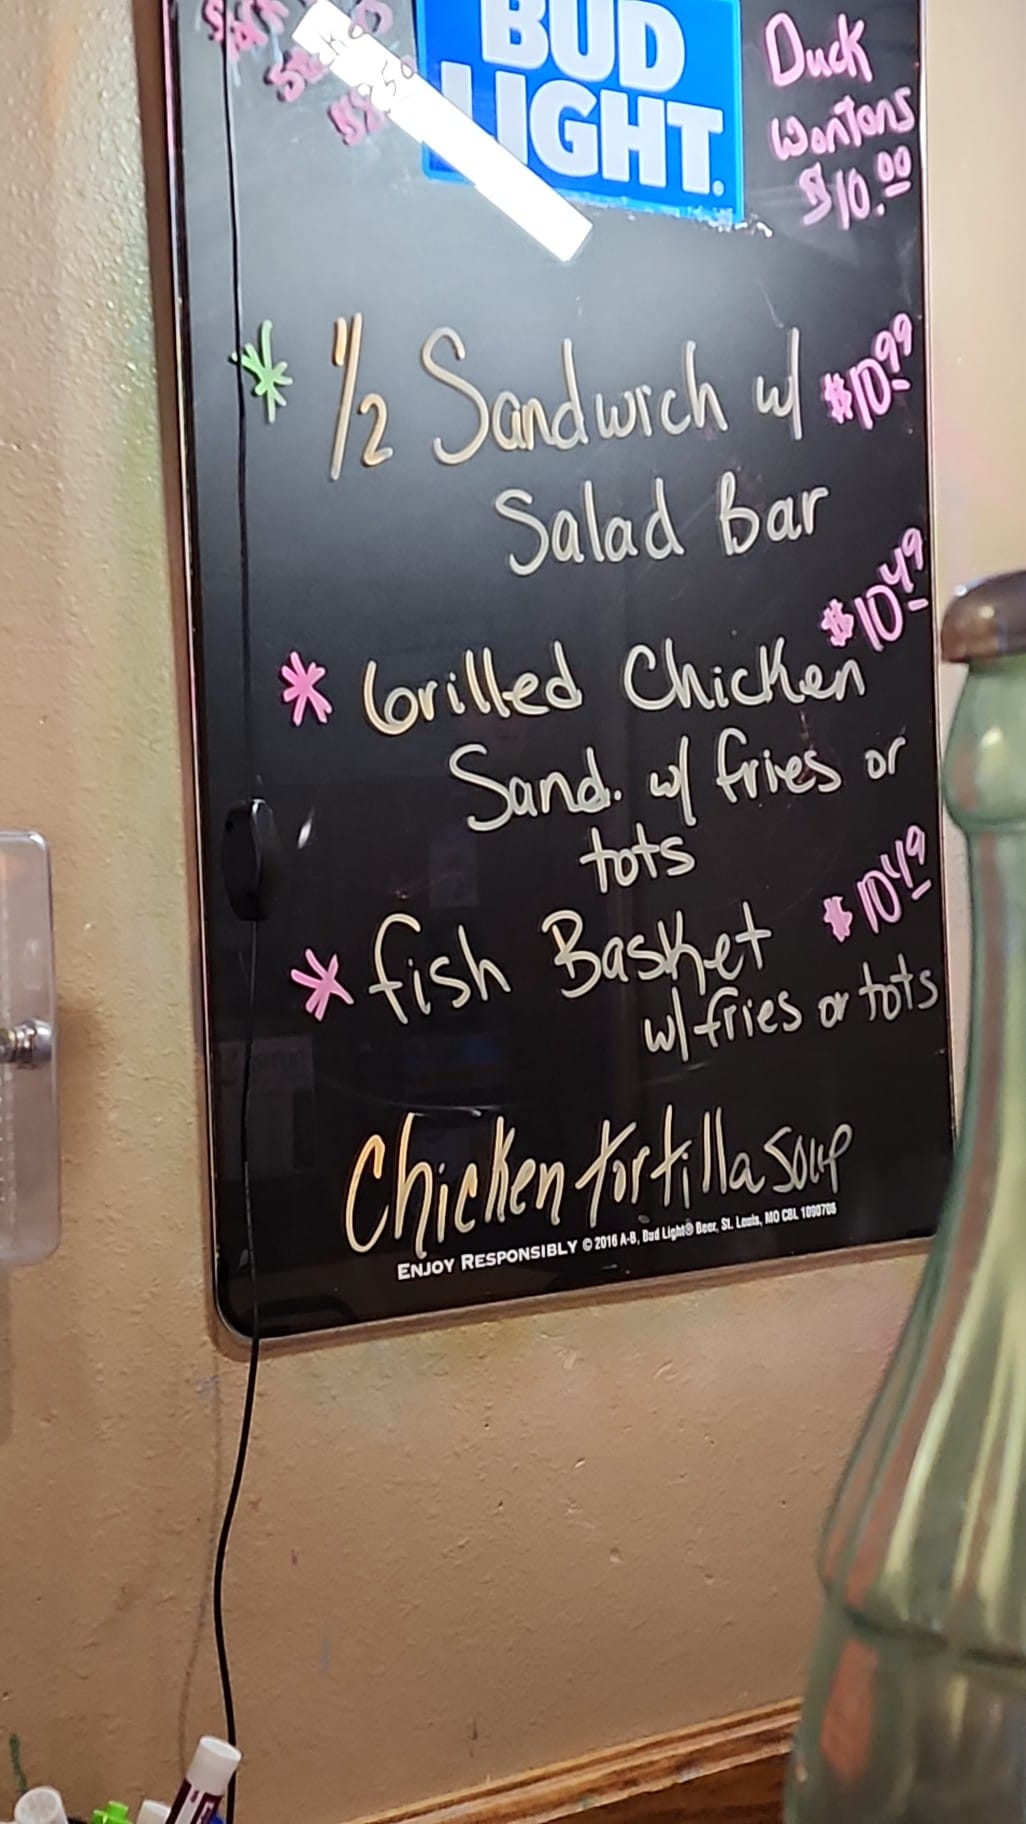 BUD
LIGHT
Duck
Wontons
$10.00
* 1/2 Sandwich w/ $10.99
Salad Bar
$10.49
* Grilled Chicken
Sand. w/ fries or
tots
* fish Basket $10.49
w/ fries or tots
Chicken tortilla soup
ENJOY RESPONSIBLY © 2016 A-B, Bud Light® Beer, St. Louis, MO CBL